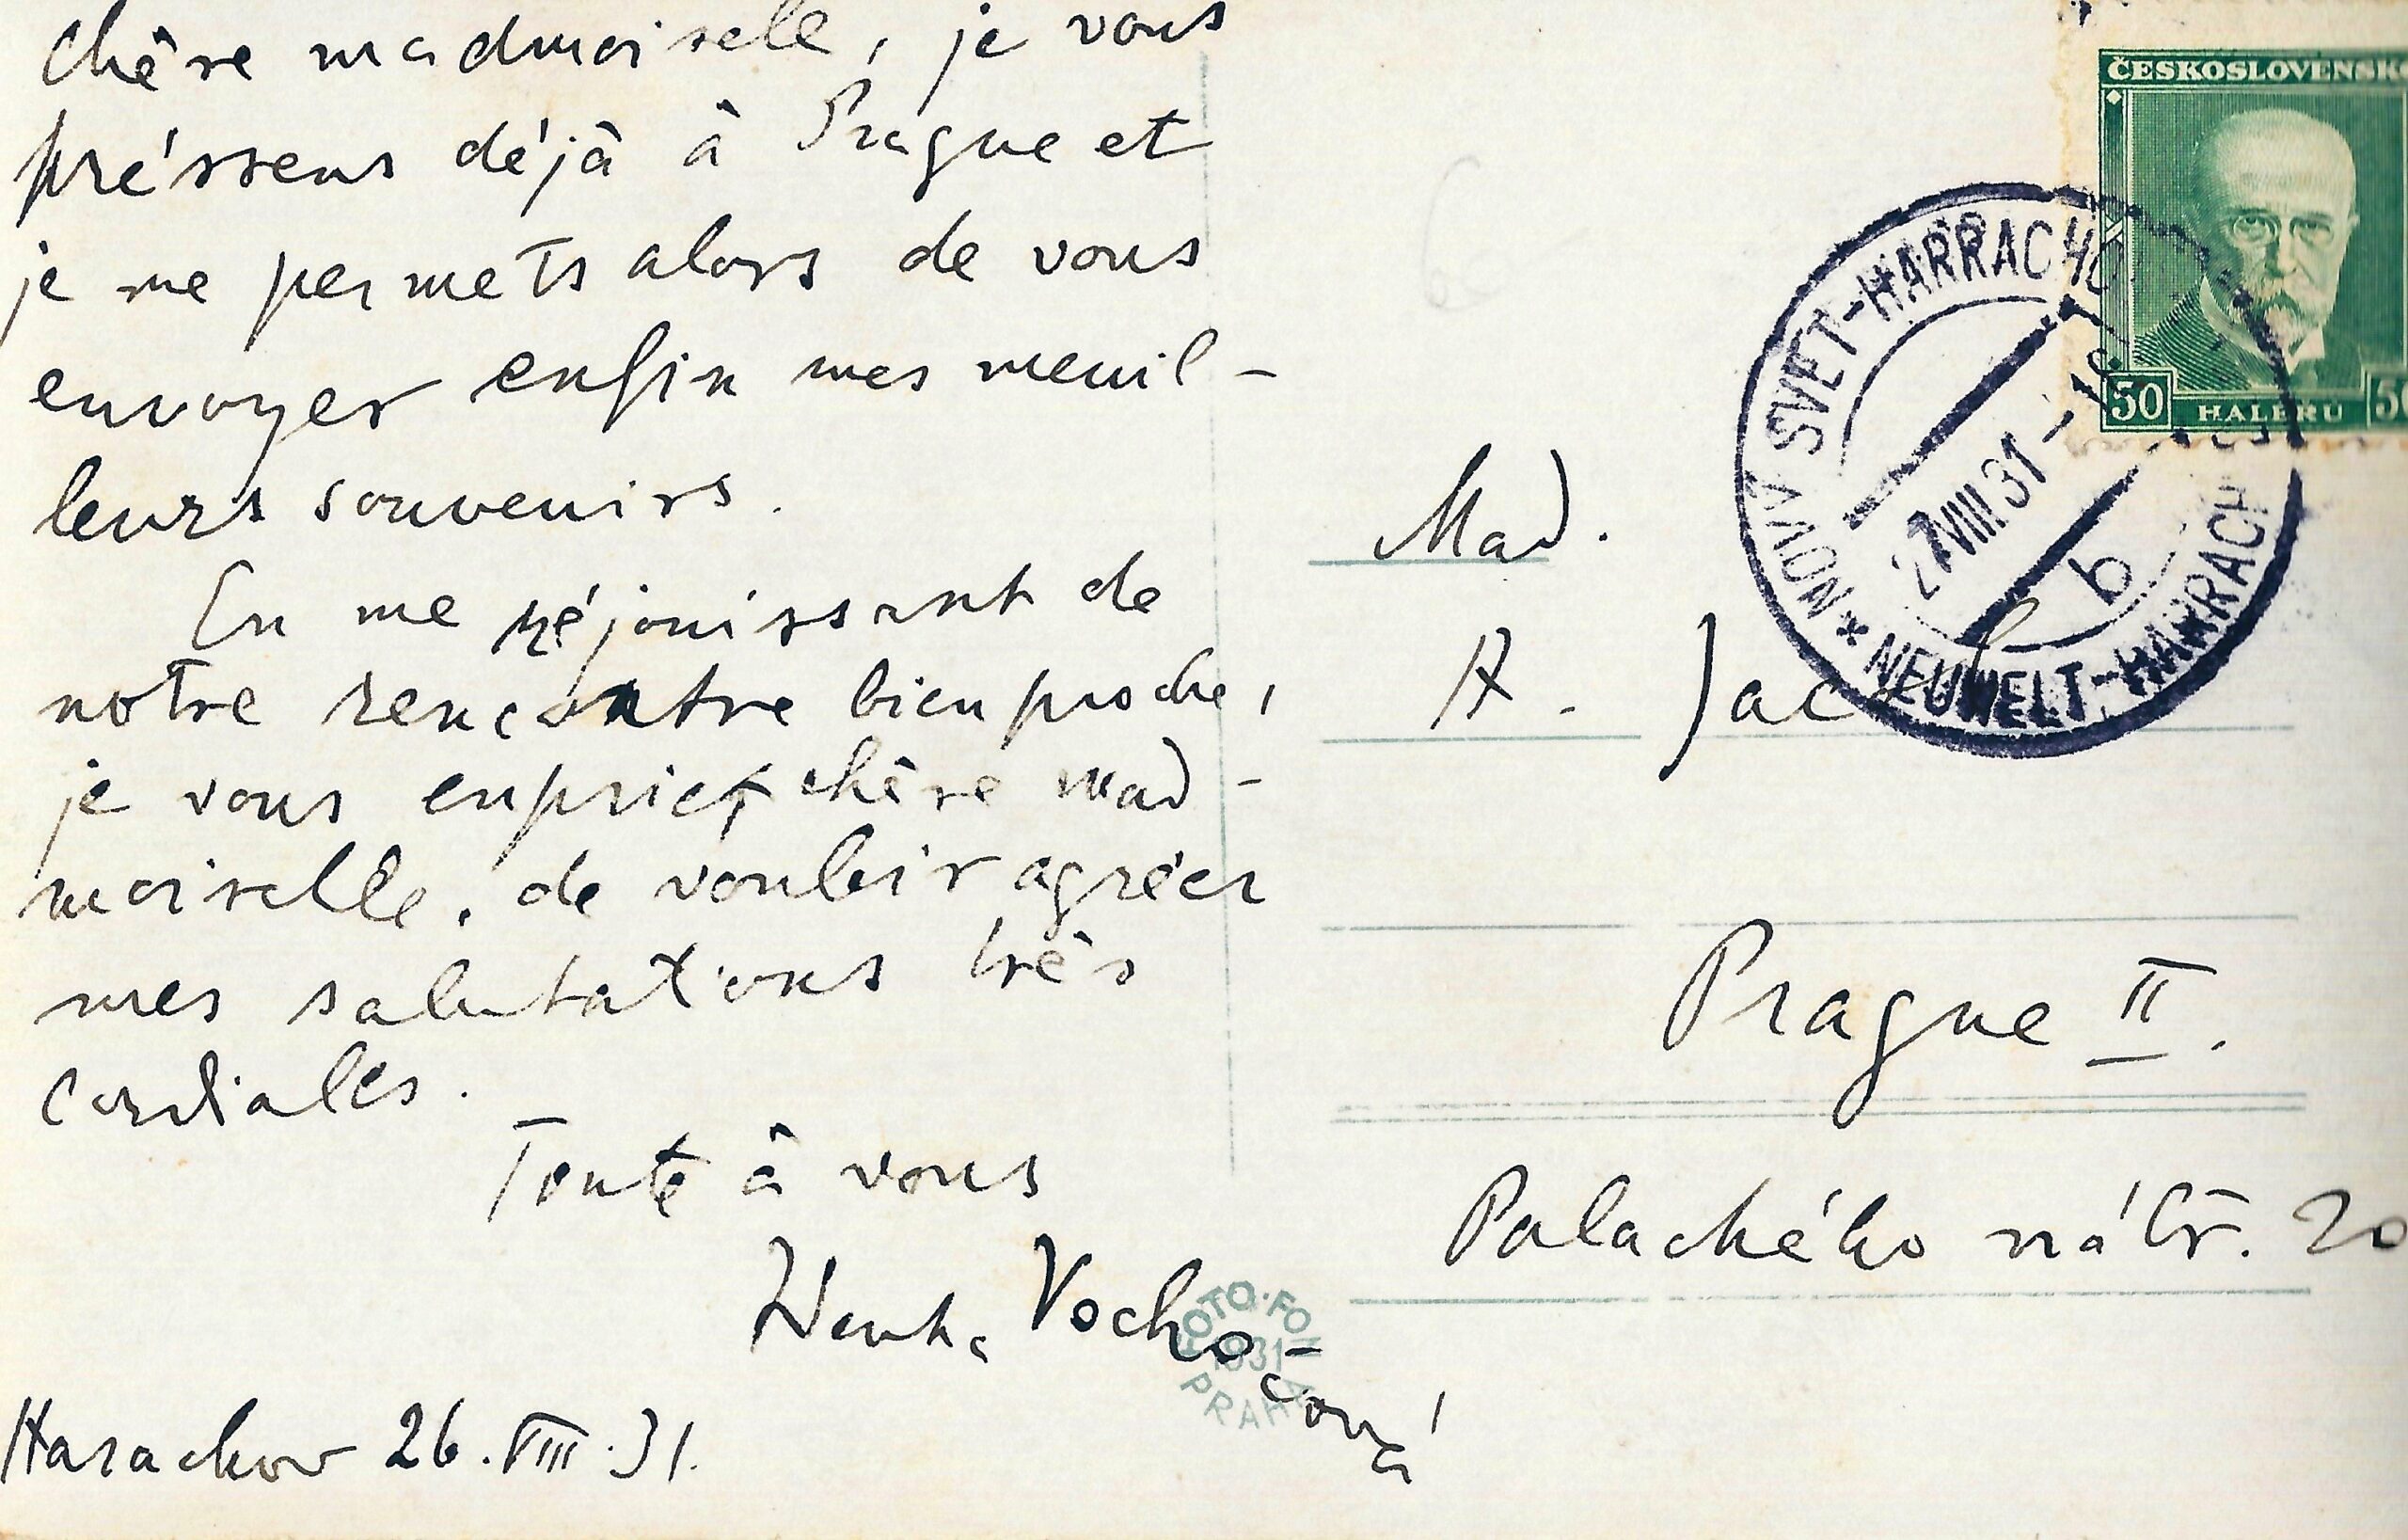 chère madmoiselle, je vous
préssens déjà à Prague et
je me permets alors de vous
envoyer enfin mes meuil-
leurs souvenirs.
En me réjouissant de
notre rencontre bien proche,
je vous enprie, chère mad-
moiselle, de vouloir agréer
mes salutations très
cordiales.
Toute à vous
Vocho-
cová
Harachov 26.VIII.31.
FOTO-FON
1931
PRAHA
ČESKOSLOVENSKO
50 HALÉŘŮ 50
NOVÝ SVET-HARRACHO
27 VIII 31
b
* NEUWELT-HARRACH
Mad.
A. Jac
Prague II.
Palackého nábř. 20